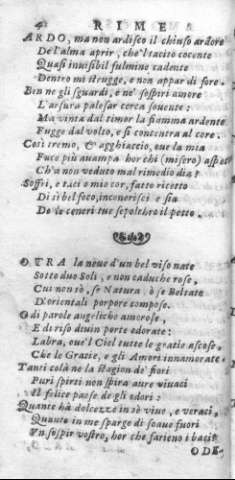 RIME
ARDO, ma non ardisco il chiuso ardore
De l'alma aprir, che'l tacito cocente
Quasi inuisibil fulmine cadente
Dentro mi strugge, e non appar di fore.
Ben ne gli sguardi, e ne' sospiri amore
L'arsura palesar cerca souente:
Ma vinta dal timor la fiamma ardente
Fugge dal volto, e si concentra al core.
Così tremo, & agghiaccio, oue la mia
Face più auampa hor chi (misero) aspet
Ch'a non veduto mal rimedio dia?
Soffri, e taci ò mio cor, fatto ricetto
Di sì bel foco, incenerisci e sia
De le ceneri tue sepolchro il petto.
O TRA la neue d'un bel viso nate
Sotto duo Soli, e non caduche rose,
Cui non sò, se Natura, ò se Beltate
D'orientali porpore compose.
O di parole angeliche amorose,
E di riso diuin porte odorate:
Labra, oue'l Ciel tutte le gratie ascose,
Che le Gratie, e gli Amori innamorate.
Tanti colà ne la stagion de' fiori
Puri spirti non spira aure viuaci
Il felice paese de gli odori:
Quante hà dolcezze in sè viue, e veraci,
Quante in me sparge di soaue fuori
Vn sospir vostro, hor che farieno i baci?
O DE-